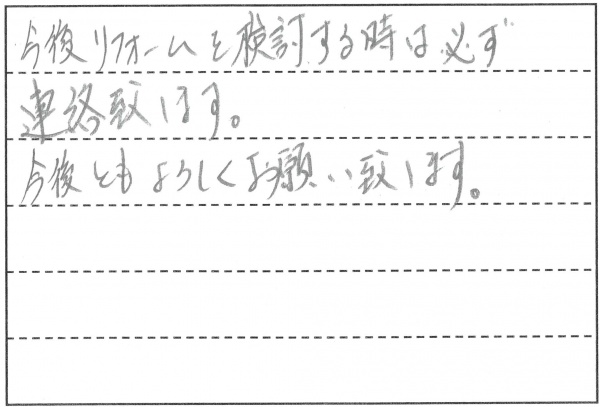 今後リフォームを検討する時は必ず
連絡致します。
今後ともよろしくお願い致します。